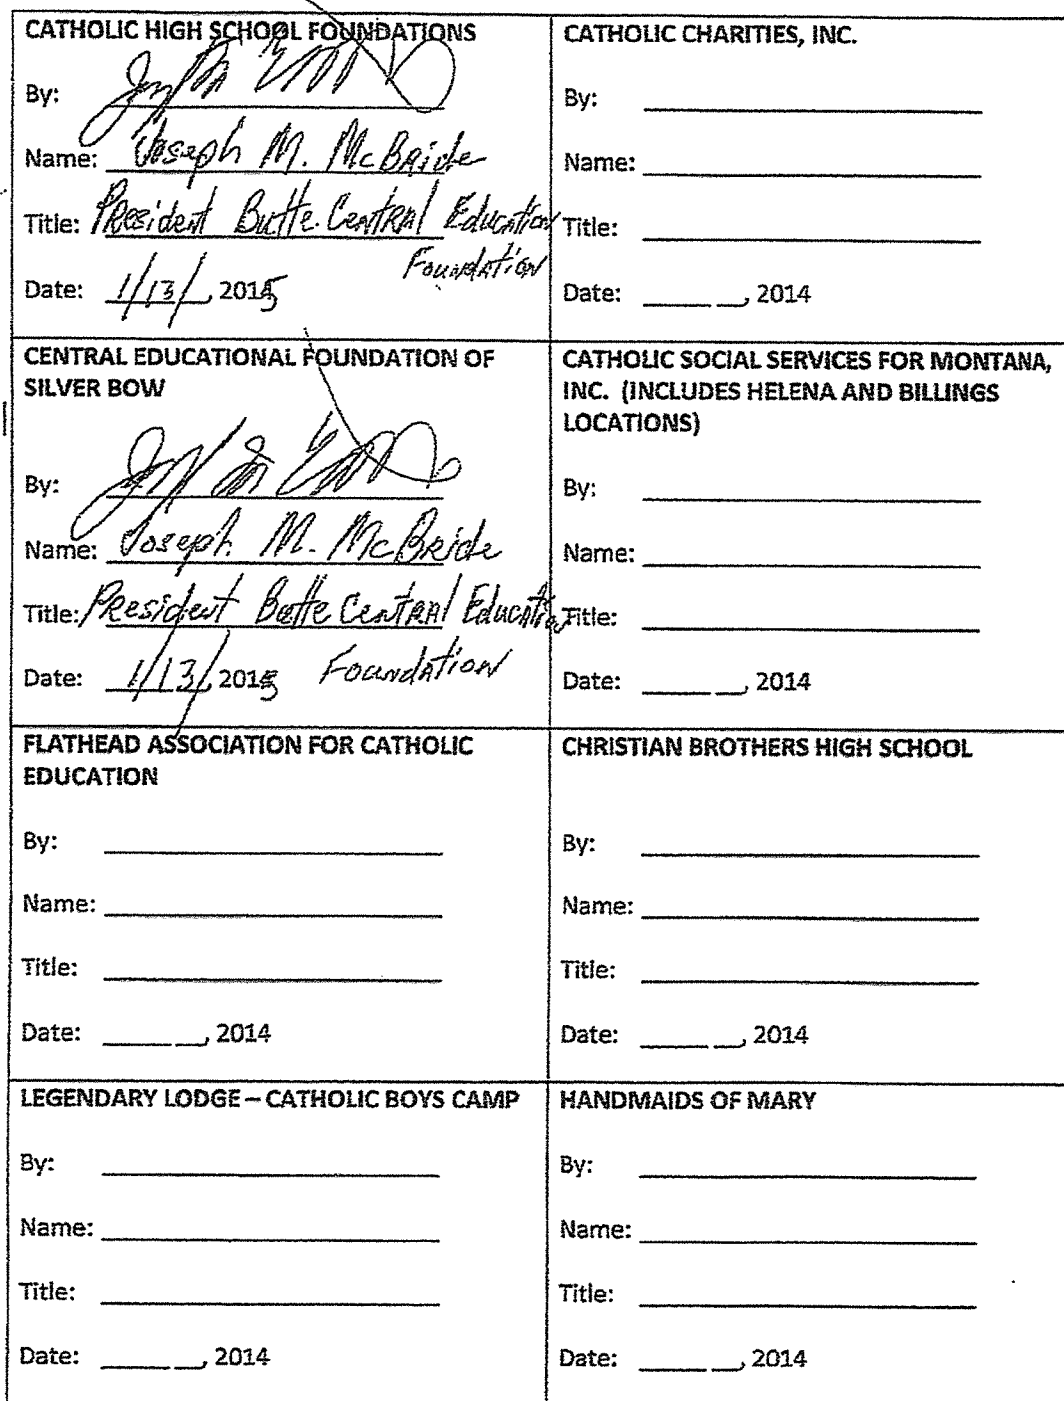 CATHOLIC HIGH SCHOOL FOUNDATIONS
By:
Name: Joseph M. McBride
Title: President Butte Central Education
Foundation
Date: 1/13/, 2015
CATHOLIC CHARITIES, INC.
By:
Name:
Title:
Date: , 2014
CENTRAL EDUCATIONAL FOUNDATION OF
SILVER BOW
By:
Name: Joseph M. McBride
Title: President Butte Central Education
Date: 1/13/, 2015 Foundation
CATHOLIC SOCIAL SERVICES FOR MONTANA,
INC. (INCLUDES HELENA AND BILLINGS
LOCATIONS)
By:
Name:
Title:
Date: , 2014
FLATHEAD ASSOCIATION FOR CATHOLIC
EDUCATION
By:
Name:
Title:
Date: , 2014
CHRISTIAN BROTHERS HIGH SCHOOL
By:
Name:
Title:
Date: , 2014
LEGENDARY LODGE – CATHOLIC BOYS CAMP
By:
Name:
Title:
Date: , 2014
HANDMAIDS OF MARY
By:
Name:
Title:
Date: , 2014